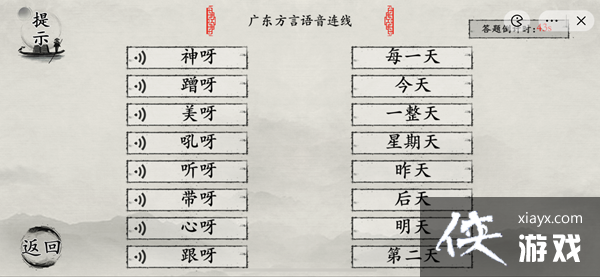 提示
广东方言语音连线
神呀 每一天
蹭呀 今天
美呀 一整天
吼呀 星期天
听呀 昨天
带呀 后天
心呀 明天
跟呀 第二天
返回
xiayx.com
侠游戏